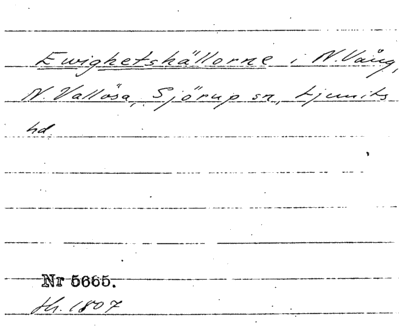 Ewighetskällorne i N. Vång,
N. Vallösa, Sjörup sn, Ljunits
hd
Nr 5665.
Hs. 1807